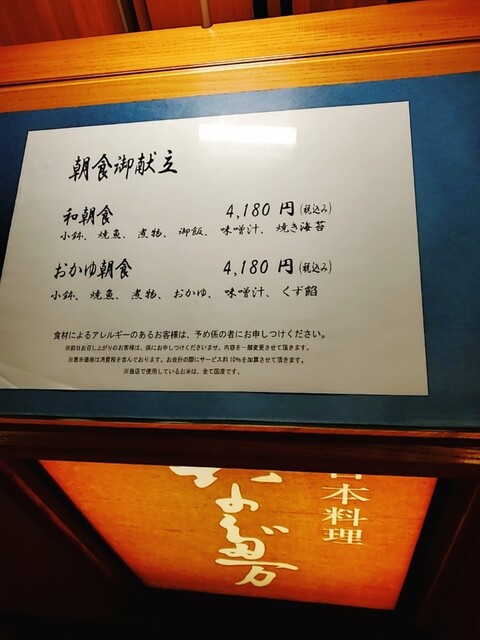 朝食御献立
和朝食 4,180 円(税込み)
小鉢、焼魚、煮物、御飯、味噌汁、焼き海苔
おかゆ朝食 4,180 円(税込み)
小鉢、焼魚、煮物、おかゆ、味噌汁、くず餡
食材によるアレルギーのあるお客様は、予め係の者にお申しつけください。
※前日お召し上がりのお客様は、係にお申しつけくださいませ。内容を一部変更させて頂きます。
※表示価格は消費税を含んでおります。お会計の際にサービス料10%を加算させて頂きます。
※当店で使用しているお米は、全て国産です。
日本料理
なだ万